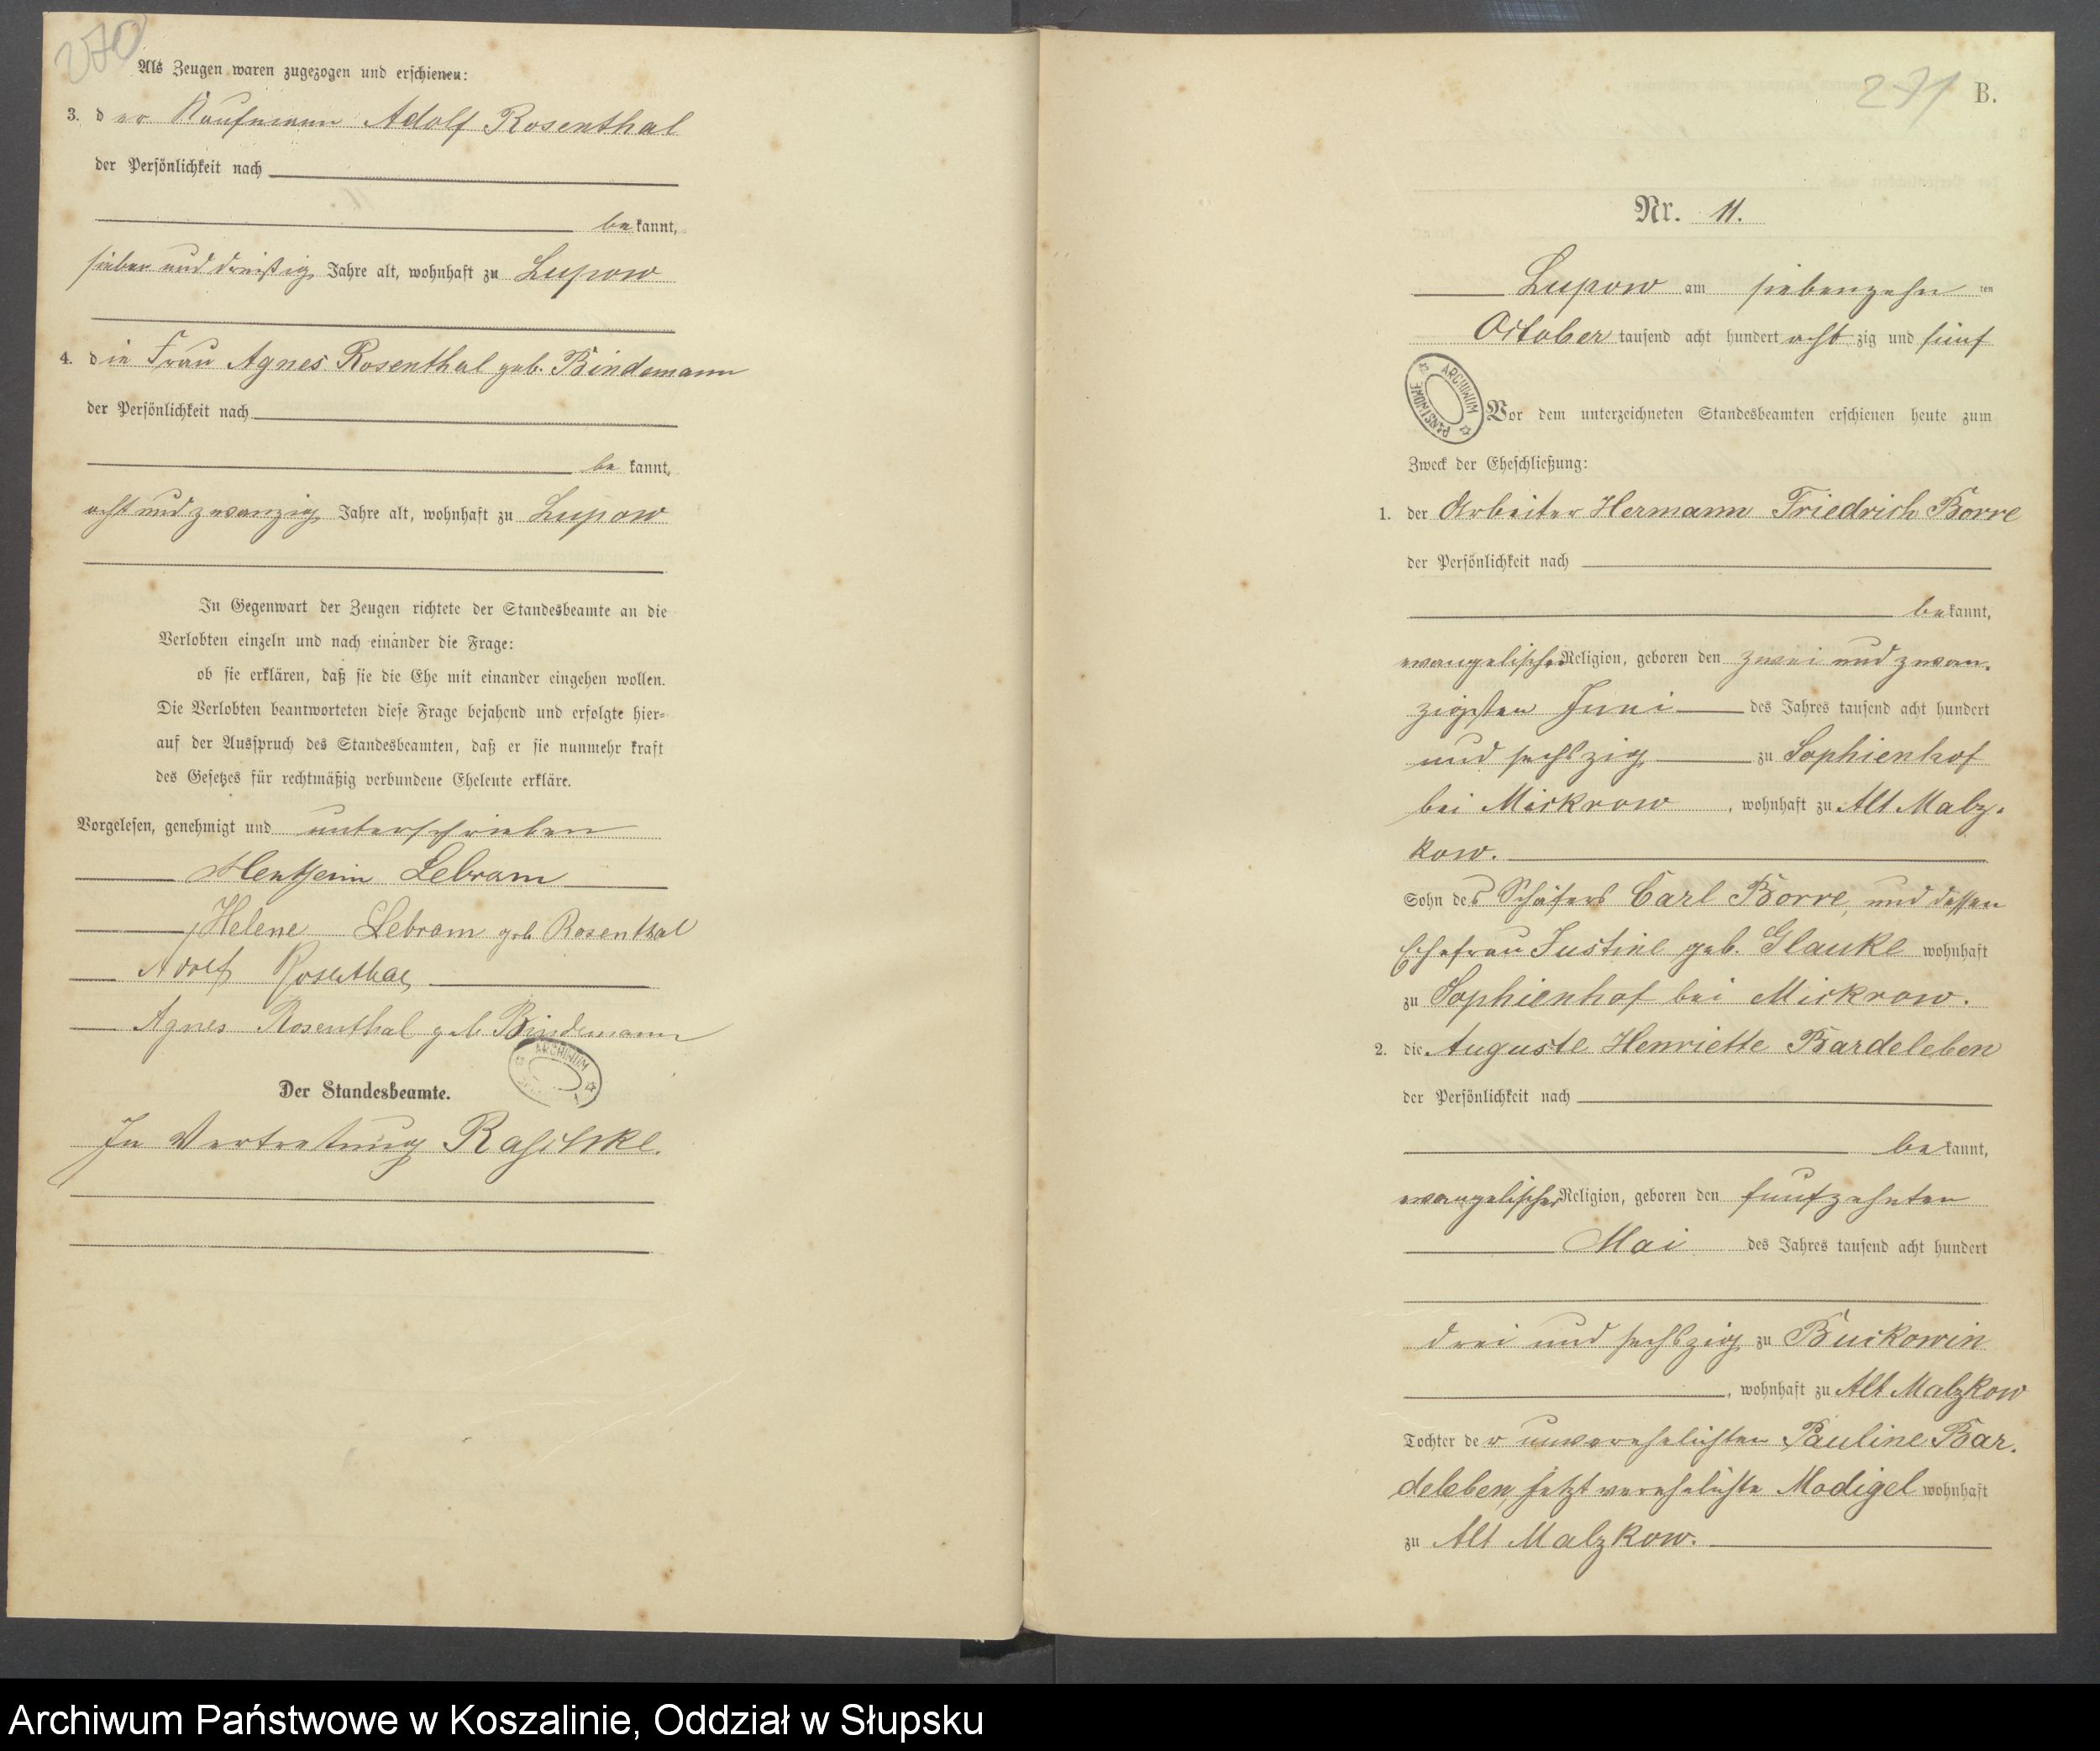 270
Als Zeugen waren zugezogen und erschienen:
3. der Kaufmann Adolf Rosenthal
der Persönlichkeit nach
bekannt,
sieben und dreißig Jahre alt, wohnhaft zu Lupow
4. die Frau Agnes Rosenthal geb. Bindemann
der Persönlichkeit nach
bekannt,
acht und zwanzig Jahre alt, wohnhaft zu Lupow
In Gegenwart der Zeugen richtete der Standesbeamte an die
Verlobten einzeln und nach einander die Frage:
ob sie erklären, daß sie die Ehe mit einander eingehen wollen.
Die Verlobten beantworteten diese Frage bejahend und erfolgte hier-
auf der Ausspruch des Standesbeamten, daß er sie nunmehr kraft
des Gesetzes für rechtmäßig verbundene Eheleute erkläre.
Vorgelesen, genehmigt und unterschrieben
Lebram
Helene Lebram geb Rosenthal
Adolf Rosenthal
Agnes Rosenthal geb Bindemann
ARCHIWUM
Der Standesbeamte.
In Vertretung Raschke.
271 B.
Nr. 11.
Lupow am siebenzehn ten
October tausend acht hundert acht zig und fünf
ARCHIWUM PAŃSTWOWE
Vor dem unterzeichneten Standesbeamten erschienen heute zum
Zweck der Eheschließung:
1. der Arbeiter Hermann Friedrich Borre
der Persönlichkeit nach
bekannt,
evangelischer Religion, geboren den zwei und zwan-
zigsten Juni des Jahres tausend acht hundert
und sechszig zu Sophienhof
bei Mickrow, wohnhaft zu Alt Malz-
kow.
Sohn des Schäfers Carl Borre, und dessen
Ehefrau Justine geb. Glauke wohnhaft
zu Sophienhof bei Mickrow.
2. die Auguste Henriette Bardeleben
der Persönlichkeit nach
bekannt,
evangelischer Religion, geboren den fünfzehnten
Mai des Jahres tausend acht hundert
drei und sechszig zu Buckowin
, wohnhaft zu Alt Malzkow
Tochter der unverehelichten Pauline Bar-
deleben, jetzt verehelichte Modigel wohnhaft
zu Alt Malzkow.
Archiwum Państwowe w Koszalinie, Oddział w Słupsku